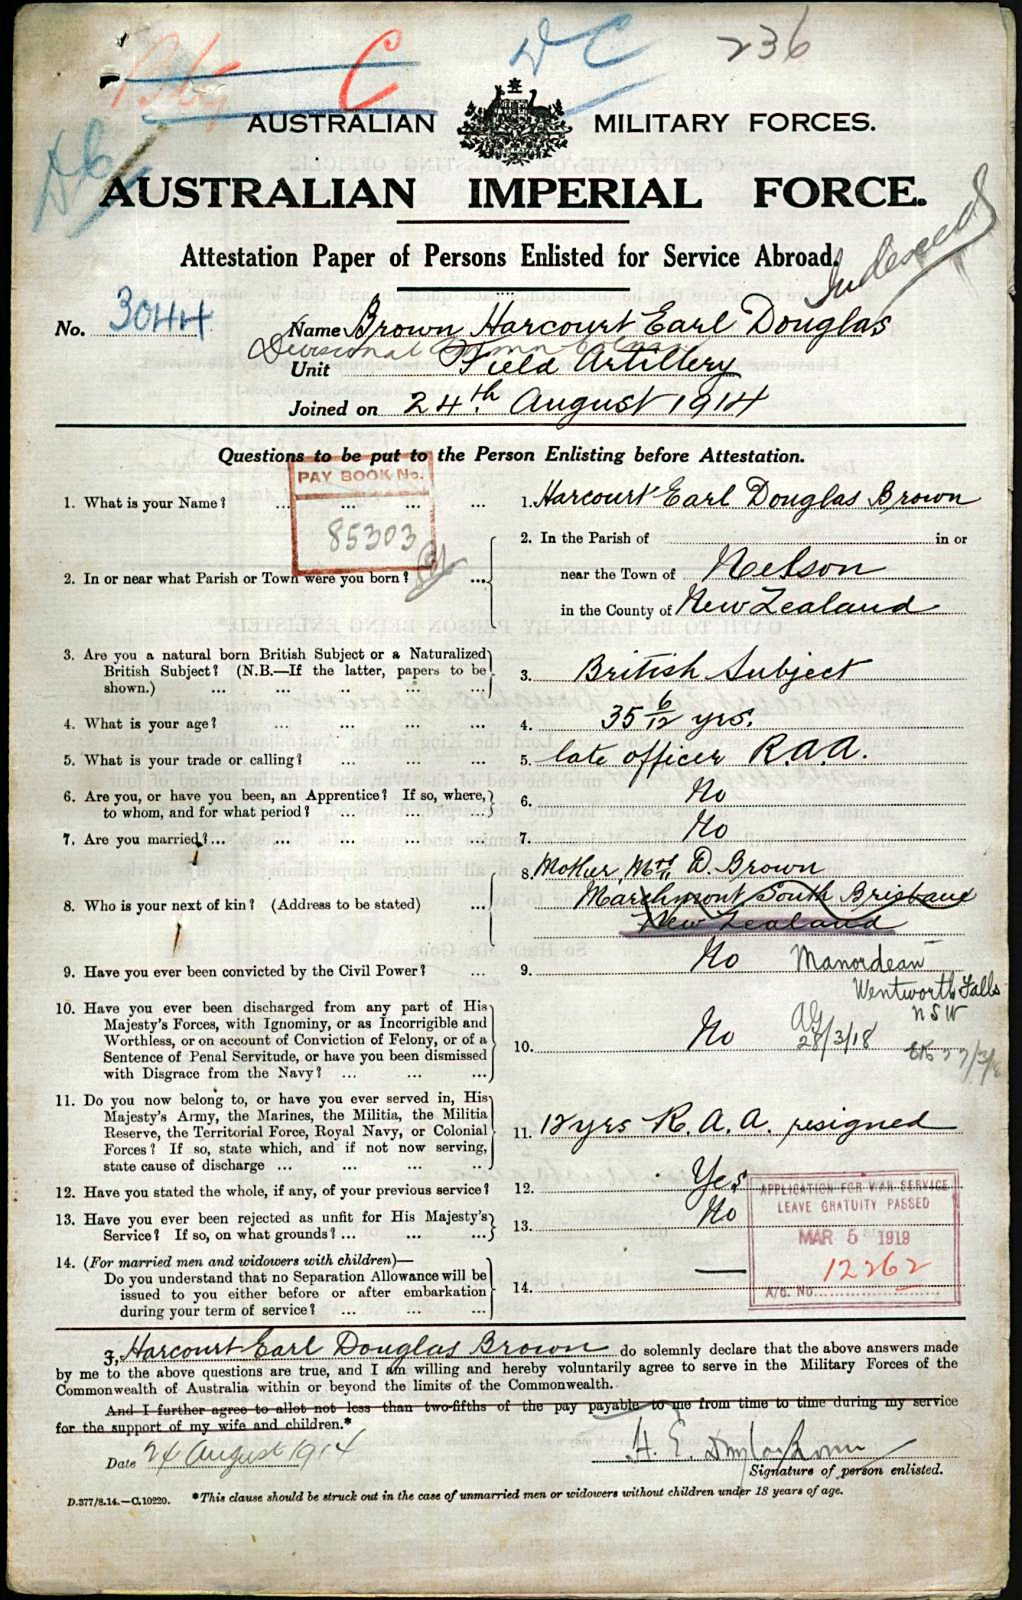 C
DC
236
AUSTRALIAN MILITARY FORCES.
AUSTRALIAN IMPERIAL FORCE.
Attestation Paper of Persons Enlisted for Service Abroad.
Indexed
No. 3044
Name Brown Harcourt Earl Douglas
Divisional
Unit Field Artillery
Joined on 24th August 1914
Questions to be put to the Person Enlisting before Attestation.
PAY BOOK No.
85303
1. What is your Name? ... ... ... ...
1. Harcourt Earl Douglas Brown
2. In or near what Parish or Town were you born? ...
2. In the Parish of in or
near the Town of Nelson
in the County of New Zealand
3. Are you a natural born British Subject or a Naturalized
British Subject? (N.B.—If the latter, papers to be
shown.) ... ... .. ...
3. British Subject
4. What is your age? ... ... ... ...
4. 35 6/12 yrs.
5. What is your trade or calling? ... ... ...
5. late officer R.A.A.
6. Are you, or have you been, an Apprentice? If so, where,
to whom, and for what period? ... ... ...
6. No
7. Are you married? ... ... ... ...
7. No
8. Who is your next of kin? (Address to be stated) ...
8. Mother, Mrs D. Brown
Marchmont South Brisbane
New Zealand
Manordean
Wentworth Falls
NSW
28/3/18
9. Have you ever been convicted by the Civil Power? ...
9. No
10. Have you ever been discharged from any part of His
Majesty's Forces, with Ignominy, or as Incorrigible and
Worthless, or on account of Conviction of Felony, or of a
Sentence of Penal Servitude, or have you been dismissed
with Disgrace from the Navy? ... ... ...
10. No
11. Do you now belong to, or have you ever served in, His
Majesty's Army, the Marines, the Militia, the Militia
Reserve, the Territorial Force, Royal Navy, or Colonial
Forces? If so, state which, and if not now serving,
state cause of discharge ... ... ... ..
11. 12 yrs R.A.A. resigned
12. Have you stated the whole, if any, of your previous service?
12. Yes
13. Have you ever been rejected as unfit for His Majesty's
Service? If so, on what grounds? ... ... ...
13. No
14. (For married men and widowers with children)—
Do you understand that no Separation Allowance will be
issued to you either before or after embarkation
during your term of service? ... ... ...
14. —
APPLICATION FOR WAR SERVICE
LEAVE GRATUITY PASSED
MAR 5 1919
12262
A/c. No.
I, Harcourt Earl Douglas Brown do solemnly declare that the above answers made
by me to the above questions are true, and I am willing and hereby voluntarily agree to serve in the Military Forces of the
Commonwealth of Australia within or beyond the limits of the Commonwealth.
And I further agree to allot not less than two-fifths of the pay payable to me from time to time during my service
for the support of my wife and children.*
Date 24 August 1914
H. E. Douglas Brown
Signature of person enlisted.
D.377/8.14.—C.10220.
*This clause should be struck out in the case of unmarried men or widowers without children under 18 years of age.